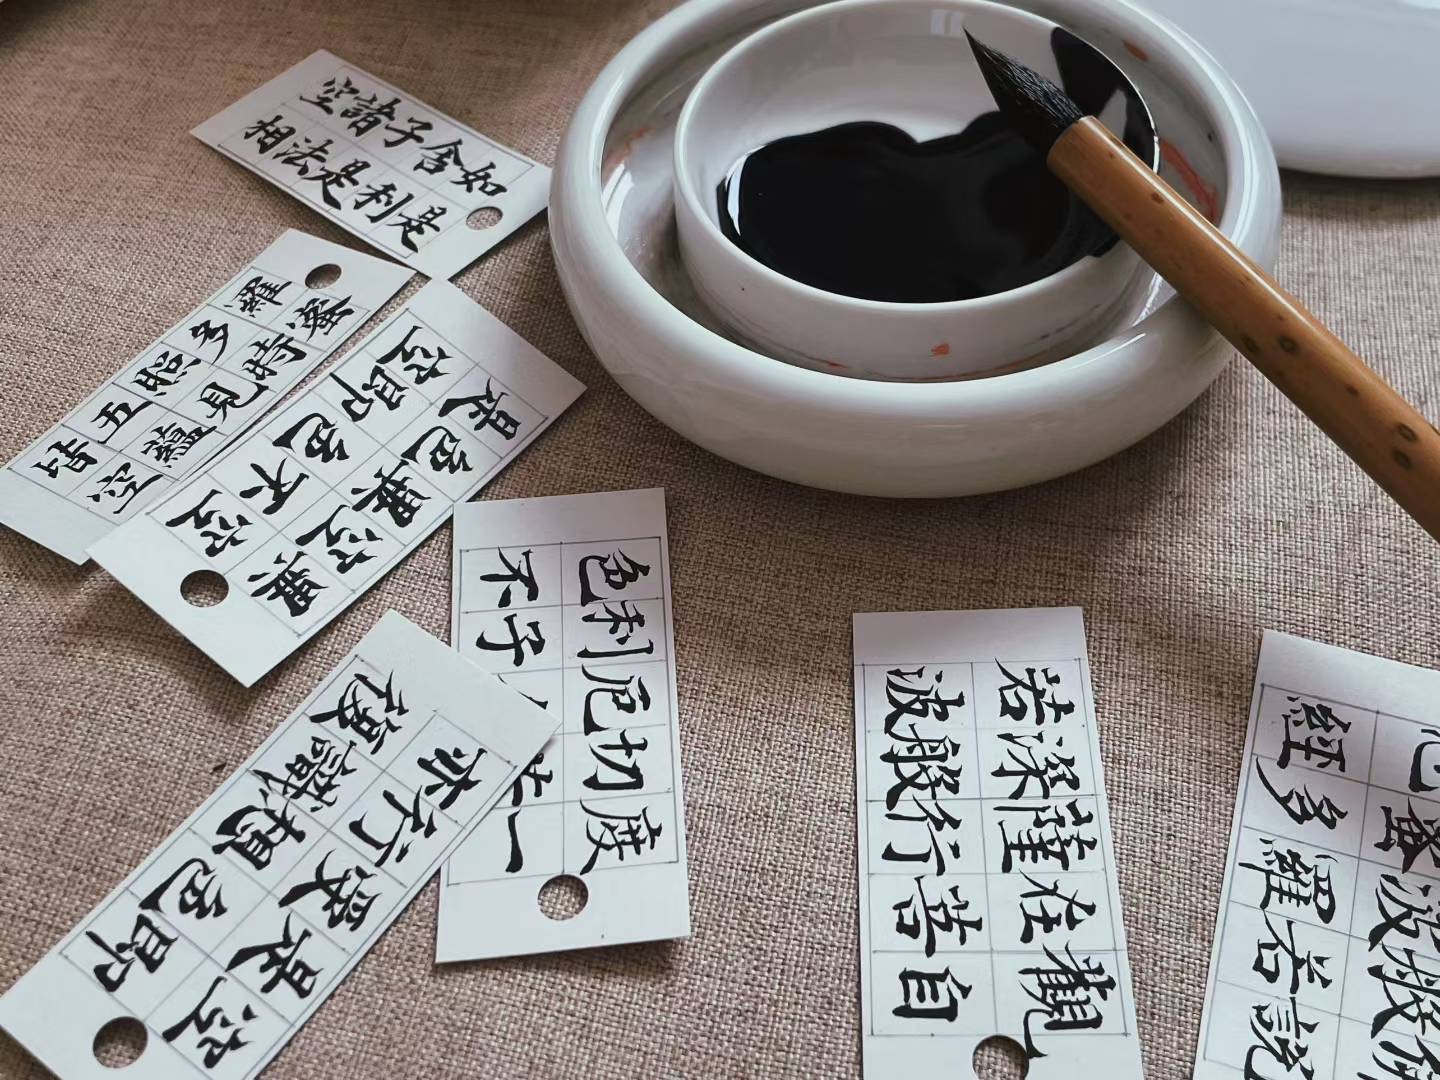 空諸子舍如
相法是利是
羅多照五皆
蜜時見蘊空
是色異空異
空即色不空
色利厄切度
不子
一
亦行受是空
復識想色即
若深薩在觀
波般行菩自
心蜜波般
經多羅若說